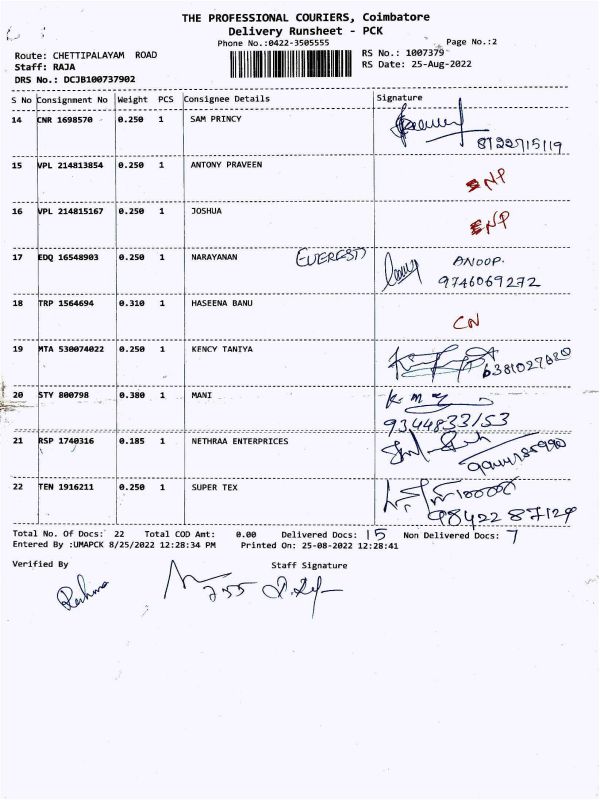 THE PROFESSIONAL COURIERS, Coimbatore
Delivery Runsheet - PCK
Phone No.:0422-3505555 Page No.:2
Route: CHETTIPALAYAM ROAD RS No.: 1007379
Staff: RAJA RS Date: 25-Aug-2022
DRS No.: DCJB100737902
S No Consignment No Weight PCS Consignee Details Signature
14 CNR 1698570 0.250 1 SAM PRINCY
8722715119
15 VPL 214813854 0.250 1 ANTONY PRAVEEN
NP
16 VPL 214815167 0.250 1 JOSHUA
NP
17 EDQ 16548903 0.250 1 NARAYANAN EVEREST ANOOP.
9746069272
18 TRP 1564694 0.310 1 HASEENA BANU
CN
19 MTA 530074022 0.250 1 KENCY TANIYA
6381027620
20 STY 800798 0.380 1 MANI
9344833153
21 RSP 1740316 0.185 1 NETHRAA ENTERPRICES
22 TEN 1916211 0.250 1 SUPER TEX
98422 87129
Total No. Of Docs: 22 Total COD Amt: 0.00 Delivered Docs: 15 Non Delivered Docs: 7
Entered By :UMAPCK 8/25/2022 12:28:34 PM Printed On: 25-08-2022 12:28:41
Verified By Staff Signature